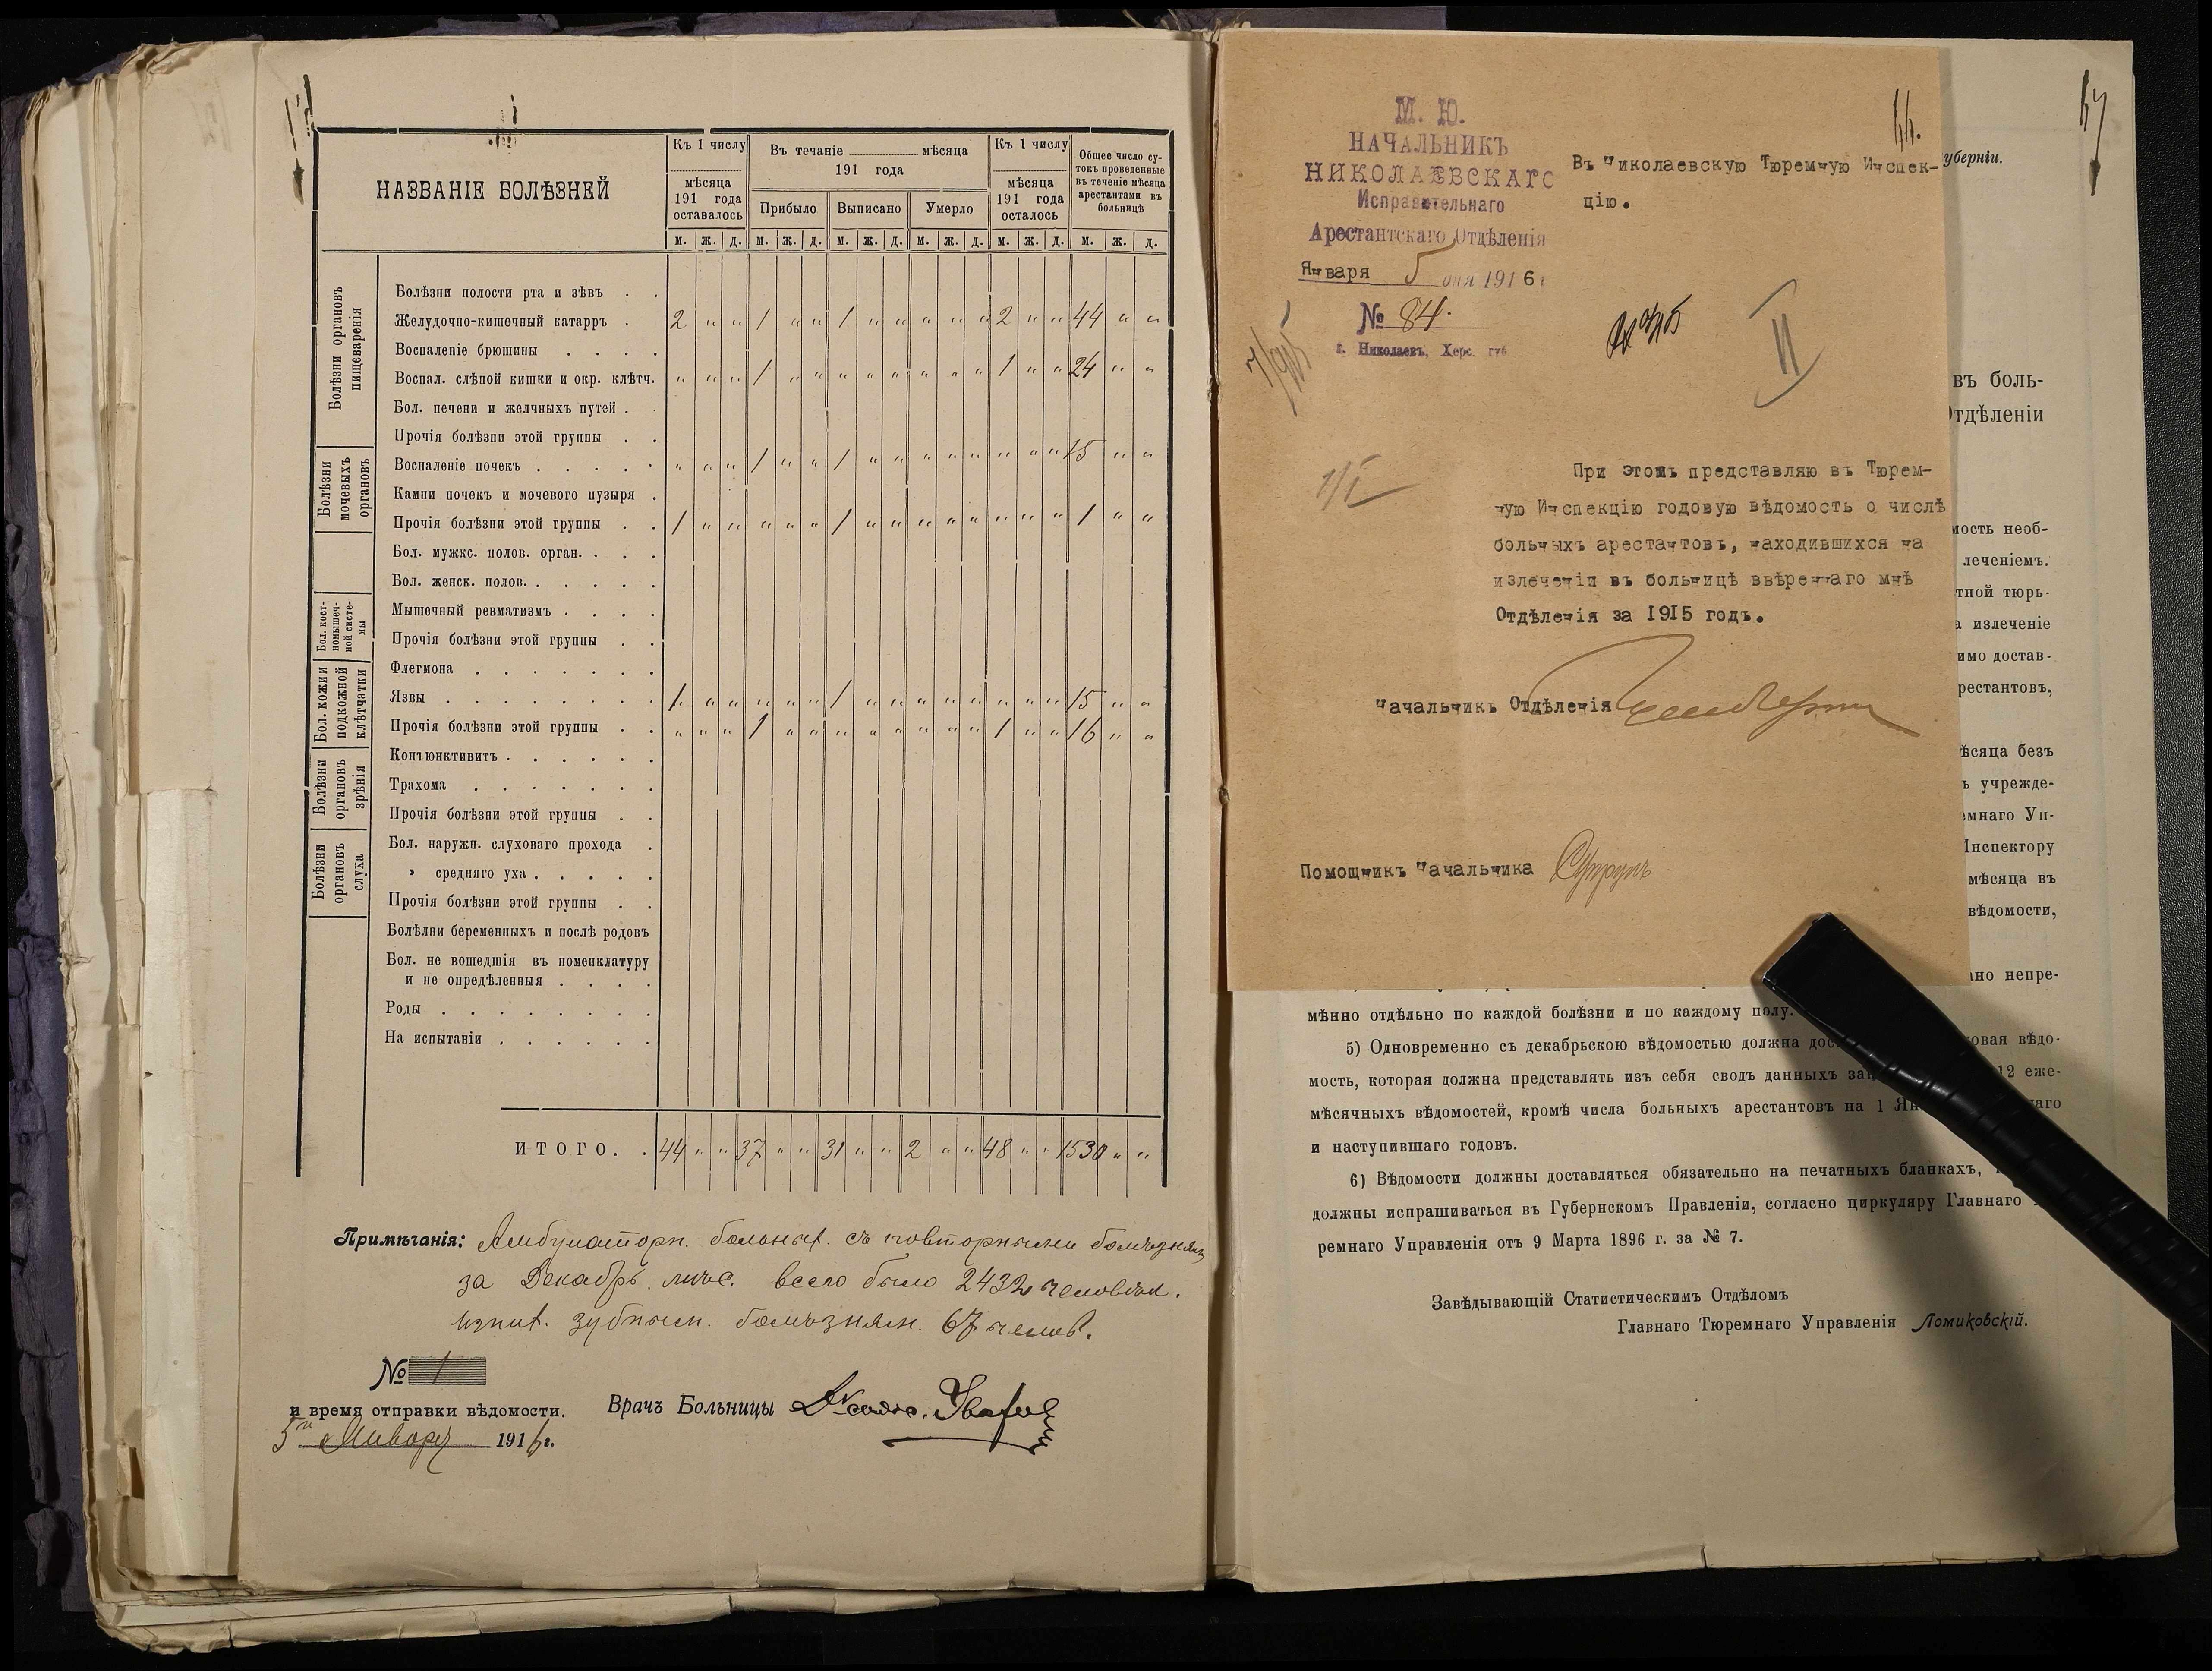 НАЗВАНІЕ БОЛѢЗНЕЙ
Къ 1 числу
мѣсяца
191 года
оставалось
Въ теченіе мѣсяца
191 года
Прибыло Выписано Умерло
Къ 1 числу
мѣсяца
191 года
осталось
Общее число су-
токъ проведенные
въ теченіе мѣсяца
арестантами въ
больницѣ
м. ж. д. м. ж. д. м. ж. д. м. ж. д. м. ж. д. м. ж. д.
Болѣзни органовъ
пищеваренія
Болѣзни полости рта и зѣвъ . .
Желудочно-кишечный катарръ . 2 " " 1 " " 1 " " " " " 2 " " 44 " "
Воспаленіе брюшины . . . .
Воспал. слѣпой кишки и окр. клѣтч. " " " 1 " " " " " " " " 1 " " 24 " "
Бол. печени и желчныхъ путей . .
Прочія болѣзни этой группы . .
Болѣзни
мочевыхъ
органовъ
Воспаленіе почекъ . . . . . " " " 1 " " 1 " " " " " " " " 15 " "
Камни почекъ и мочевого пузыря .
Прочія болѣзни этой группы . . 1 " " " " " 1 " " " " " " " " 1 " "
Бол. мужск. полов. орган. . . .
Бол. женск. полов. . . . . .
Бол. кост-
номышеч-
ной систе-
мы
Мышечный ревматизмъ . . . .
Прочія болѣзни этой группы . .
Бол. кожи и
подкожной
клѣтчатки
Флегмона . . . . . . .
Язвы . . . . . . . . 1 " " " " " 1 " " " " " " " " 15 " "
Прочія болѣзни этой группы . . " " " 1 " " " " " " " " 1 " " 16 " "
Болѣзни
органовъ
зрѣнія
Конъюнктивитъ . . . . . .
Трахома . . . . . . .
Прочія болѣзни этой группы . .
Болѣзни
органовъ
слуха
Бол. наружн. слуховаго прохода .
› средняго уха . . . . .
Прочія болѣзни этой группы . .
Болѣзни беременныхъ и послѣ родовъ
Бол. не вошедшія въ номенклатуру
и не опредѣленныя . . . .
Роды . . . . . . . .
На испытаніи . . . . . .
ИТОГО. . 44 " " 37 " " 31 " " 2 " " 48 " " 1530 " "
Примѣчанія: Амбулаторн. больныхъ съ повторными болѣзнями
за Декабрь мѣс. всего было 2432 человѣк.
зубным. болѣзням. 67 челов.
№ 1
и время отправки вѣдомости.
5го Января 1916 г.
Врачъ Больницы
М. Ю.
НАЧАЛЬНИКЪ
НИКОЛАЕВСКАГО
Исправительнаго
Арестантскаго Отдѣленія
Января 5 дня 1916 г
№ 84.
г. Николаевъ, Херс. губ
Въ Николаевскую Тюремную Инспек-
цію.
II
При этомъ представляю въ Тюрем-
ную Инспекцію годовую вѣдомость о числѣ
больныхъ арестантовъ, находившихся на
излеченіи въ больницѣ ввѣреннаго мнѣ
Отдѣленія за 1915 годъ.
Начальникъ Отдѣленія
Помощникъ Начальника Супрунъ
губерніи.
въ боль-
Отдѣленіи
мость необ-
леченіемъ.
тной тюрь-
а излеченіе
имо достав-
рестантовъ,
ѣсяца безъ
ь учрежде-
емнаго Уп-
Инспектору
мѣсяца въ
вѣдомости,
ано непре-
мѣнно отдѣльно по каждой болѣзни и по каждому полу.
5) Одновременно съ декабрьскою вѣдомостью должна дос овая вѣдо-
мость, которая должна представлять изъ себя сводъ данныхъ за 12 еже-
мѣсячныхъ вѣдомостей, кромѣ числа больныхъ арестантовъ на 1 Ян наго
и наступившаго годовъ.
6) Вѣдомости должны доставляться обязательно на печатныхъ бланкахъ,
должны испрашиваться въ Губернскомъ Правленіи, согласно циркуляру Главнаго
ремнаго Управленія отъ 9 Марта 1896 г. за № 7.
Завѣдывающій Статистическимъ Отдѣломъ
Главнаго Тюремнаго Управленія Ломиковскій.